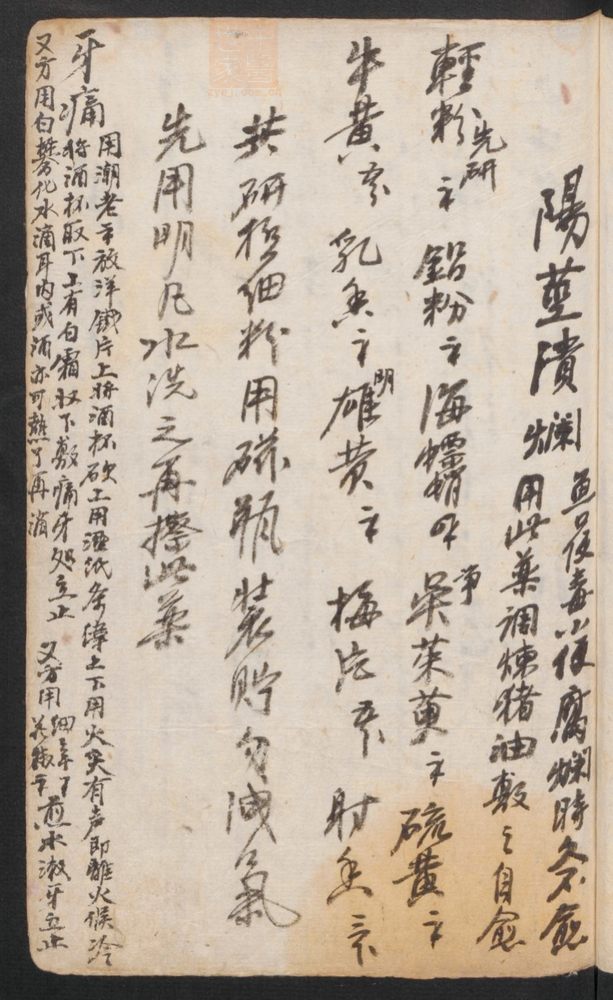 陽莖潰爛
魚口便毒小便腐爛時久不愈
用此藥調煉猪油敷之自愈
輕粉 先研 鉛粉 海螵蛸 吳茱萸 硫黃
牛黃 乳香 明雄黃 梅片 射香
共研極細粉用磁瓶裝貯勿洩氣
先用明凡水洗之再擦此藥
牙痛
用潮老 放洋鐵片上將酒杯砍上用濕紙条 上下用火 有声即離火候冷
將酒杯取下上有白霜取下敷痛牙处立止
又方用細辛 煎水漱牙立止
又方用白礬化水滴耳內或酒亦可 了再滴